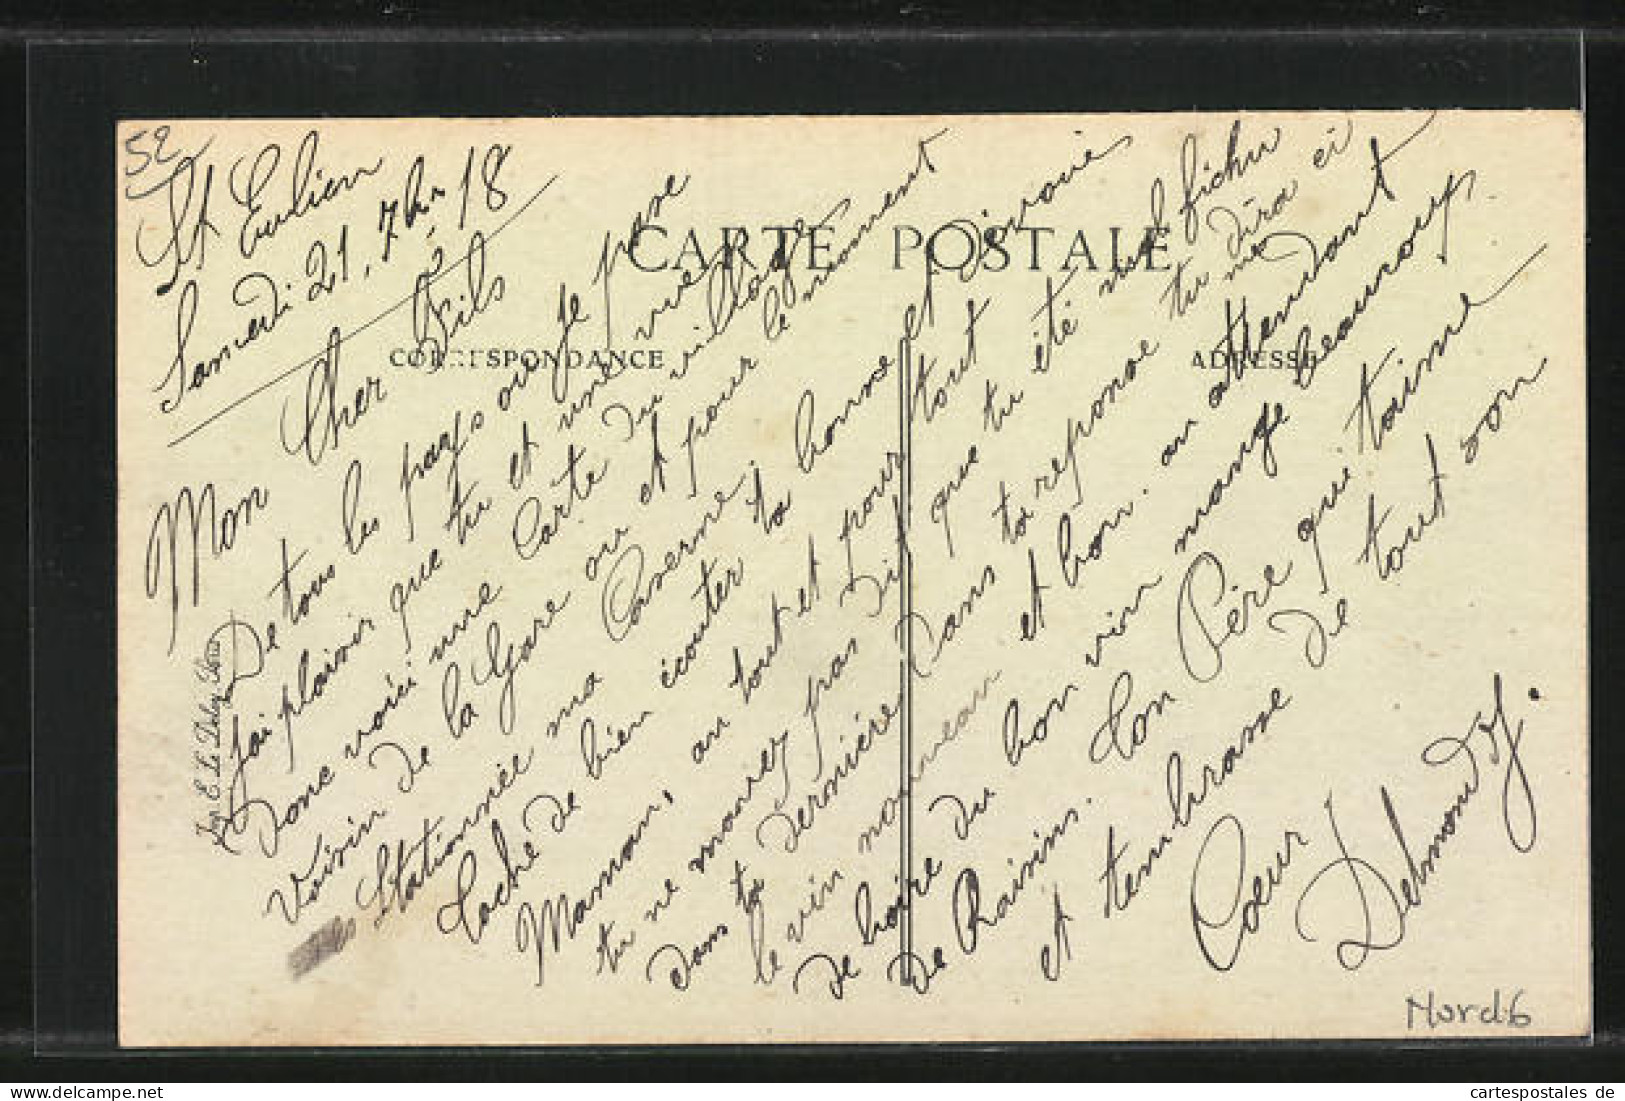 52
St Eulien
Samedi 21, 7bre 18
CARTE POSTALE
CORRESPONDANCE
ADRESSE
Mon Cher Fils
De tous les pays ou je passe
jai plaisir que tu et une vue
Donc voici une Carte du village
Voisin de la Gare ou et pour le moment
Stationnée ma Caserne,
tache de bien écouter ta bonne et
Maman, au tout et pour tout
tu ne maurez pas dit que tu été mal fichu
dans ta dernière, Dans ta reponse tu me dira ci
le vin nouveau et bon. an attendant
de boire du bon vin mange beaucoups
de Raisins. Ton Père qui taime
et tembrasse de tout son
Coeur
Delmond J.
Imp. E. Le Deley, Paris
Nord 6
cartespostales de